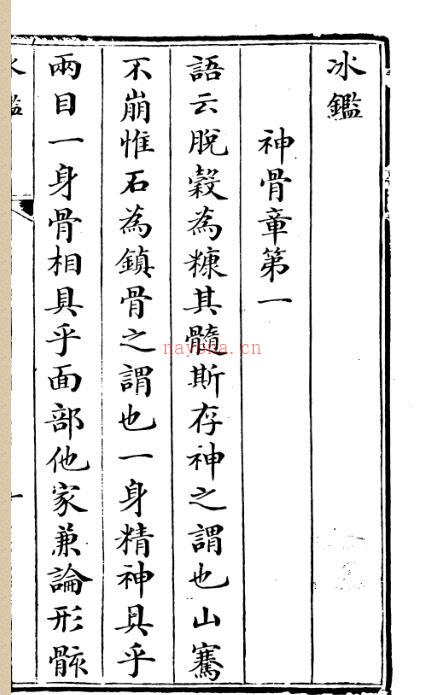 冰鑑
神骨章第一
語云脫穀為糠其髓斯存神之謂也山騫
不崩惟石為鎮骨之謂也一身精神具乎
兩目一身骨相具乎面部他家兼論形骸
冰鑑
一
nayona.cn